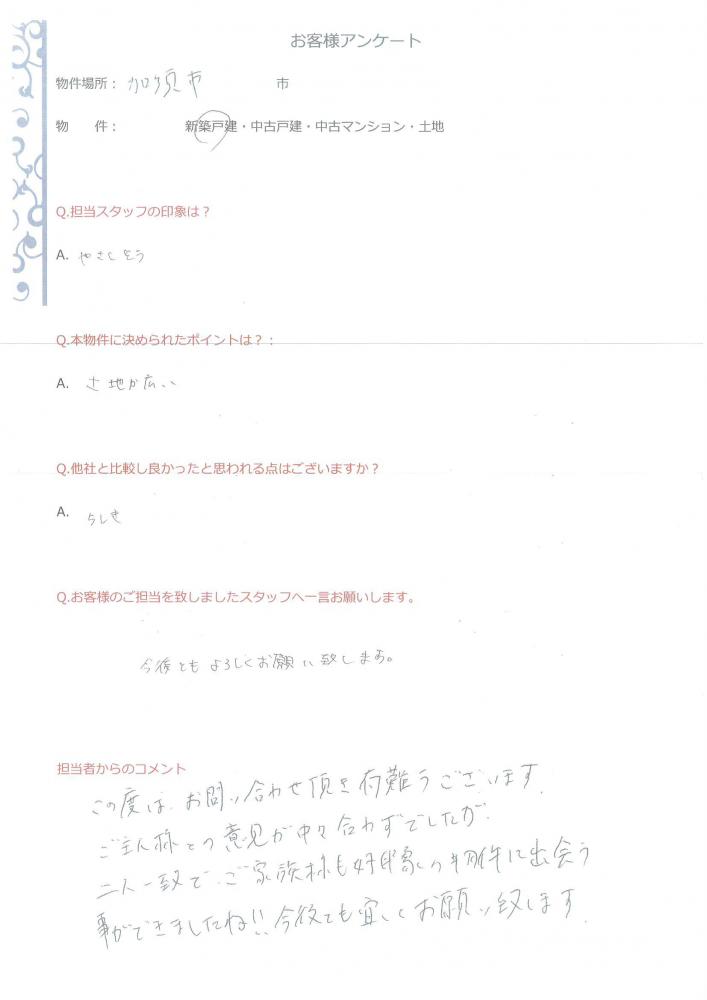 お客様アンケート
物件場所： 加須市 市
物 件： 新築戸建・中古戸建・中古マンション・土地
Q.担当スタッフの印象は？
A. やさしそう
Q.本物件に決められたポイントは？：
A. 土地が広い
Q.他社と比較し良かったと思われる点はございますか？
A.
Q.お客様のご担当を致しましたスタッフへ一言お願いします。
今後ともよろしくお願い致します。
担当者からのコメント
この度は、お問い合わせ頂き有難うございます。
ご主人様との意見が中々合わずでしたが、
二人一致で、ご家族様も好印象の物件に出会う
事ができましたね!! 今後とも宜しくお願い致します。